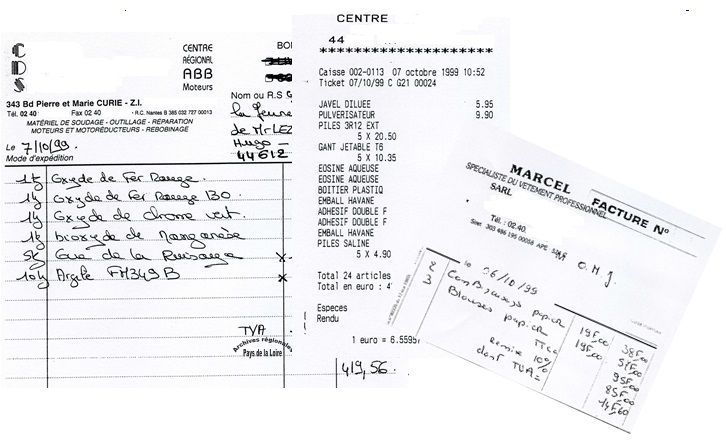 CDS
CENTRE
RÉGIONAL
ABB
Moteurs
BO
343 Bd Pierre et Marie CURIE - Z.I.
Tél. 02 40 Fax 02 40 - R.C. Nantes B 385 032 727 00013
MATÉRIEL DE SOUDAGE - OUTILLAGE - RÉPARATION
MOTEURS ET MOTORÉDUCTEURS - REBOBINAGE
Nom ou R.S
la
de Mr LEZ
Hugo -
44612
Le 7/10/99.
Mode d'expédition
1k Oxyde de Fer Rouge.
1k Oxyde de Fer Rouge 130.
1k Oxyde de chrome vert.
1k bioxyde de Manganèse
5k de la x
10k Argile FM349B x
TVA
Archives régionales
Pays de la Loire
419,56.
CENTRE
44
****************************
Caisse 002-0113 07 octobre 1999 10:52
Ticket 07/10/99 C G21 00024
JAVEL DILUEE 5.95
PULVERISATEUR 9.90
PILES 3R12 EXT
5 X 20.50
GANT JETABLE T6
5 X 10.35
EOSINE AQUEUSE
EOSINE AQUEUSE
BOITIER PLASTIQ
EMBALL HAVANE
ADHESIF DOUBLE F
ADHESIF DOUBLE F
EMBALL HAVANE
PILES SALINE
5 X 4.90
Total 24 articles
Total en euro : 4
Especes
Rendu
1 euro = 6.5595
MARCEL
SPECIALISTE DU VETEMENT PROFESSIONNEL
SARL
FACTURE N°
Tél. : 02.40
Siret 303 486 195 00036 APE
O.M.J.
le 06/10/99
2 Combinaisons papier 19F,00 38F,00
3 Blouses papier 19F,00 57F,00
TTC 95F,00
Remise 10% 85F,00
dont TVA = 14F,60